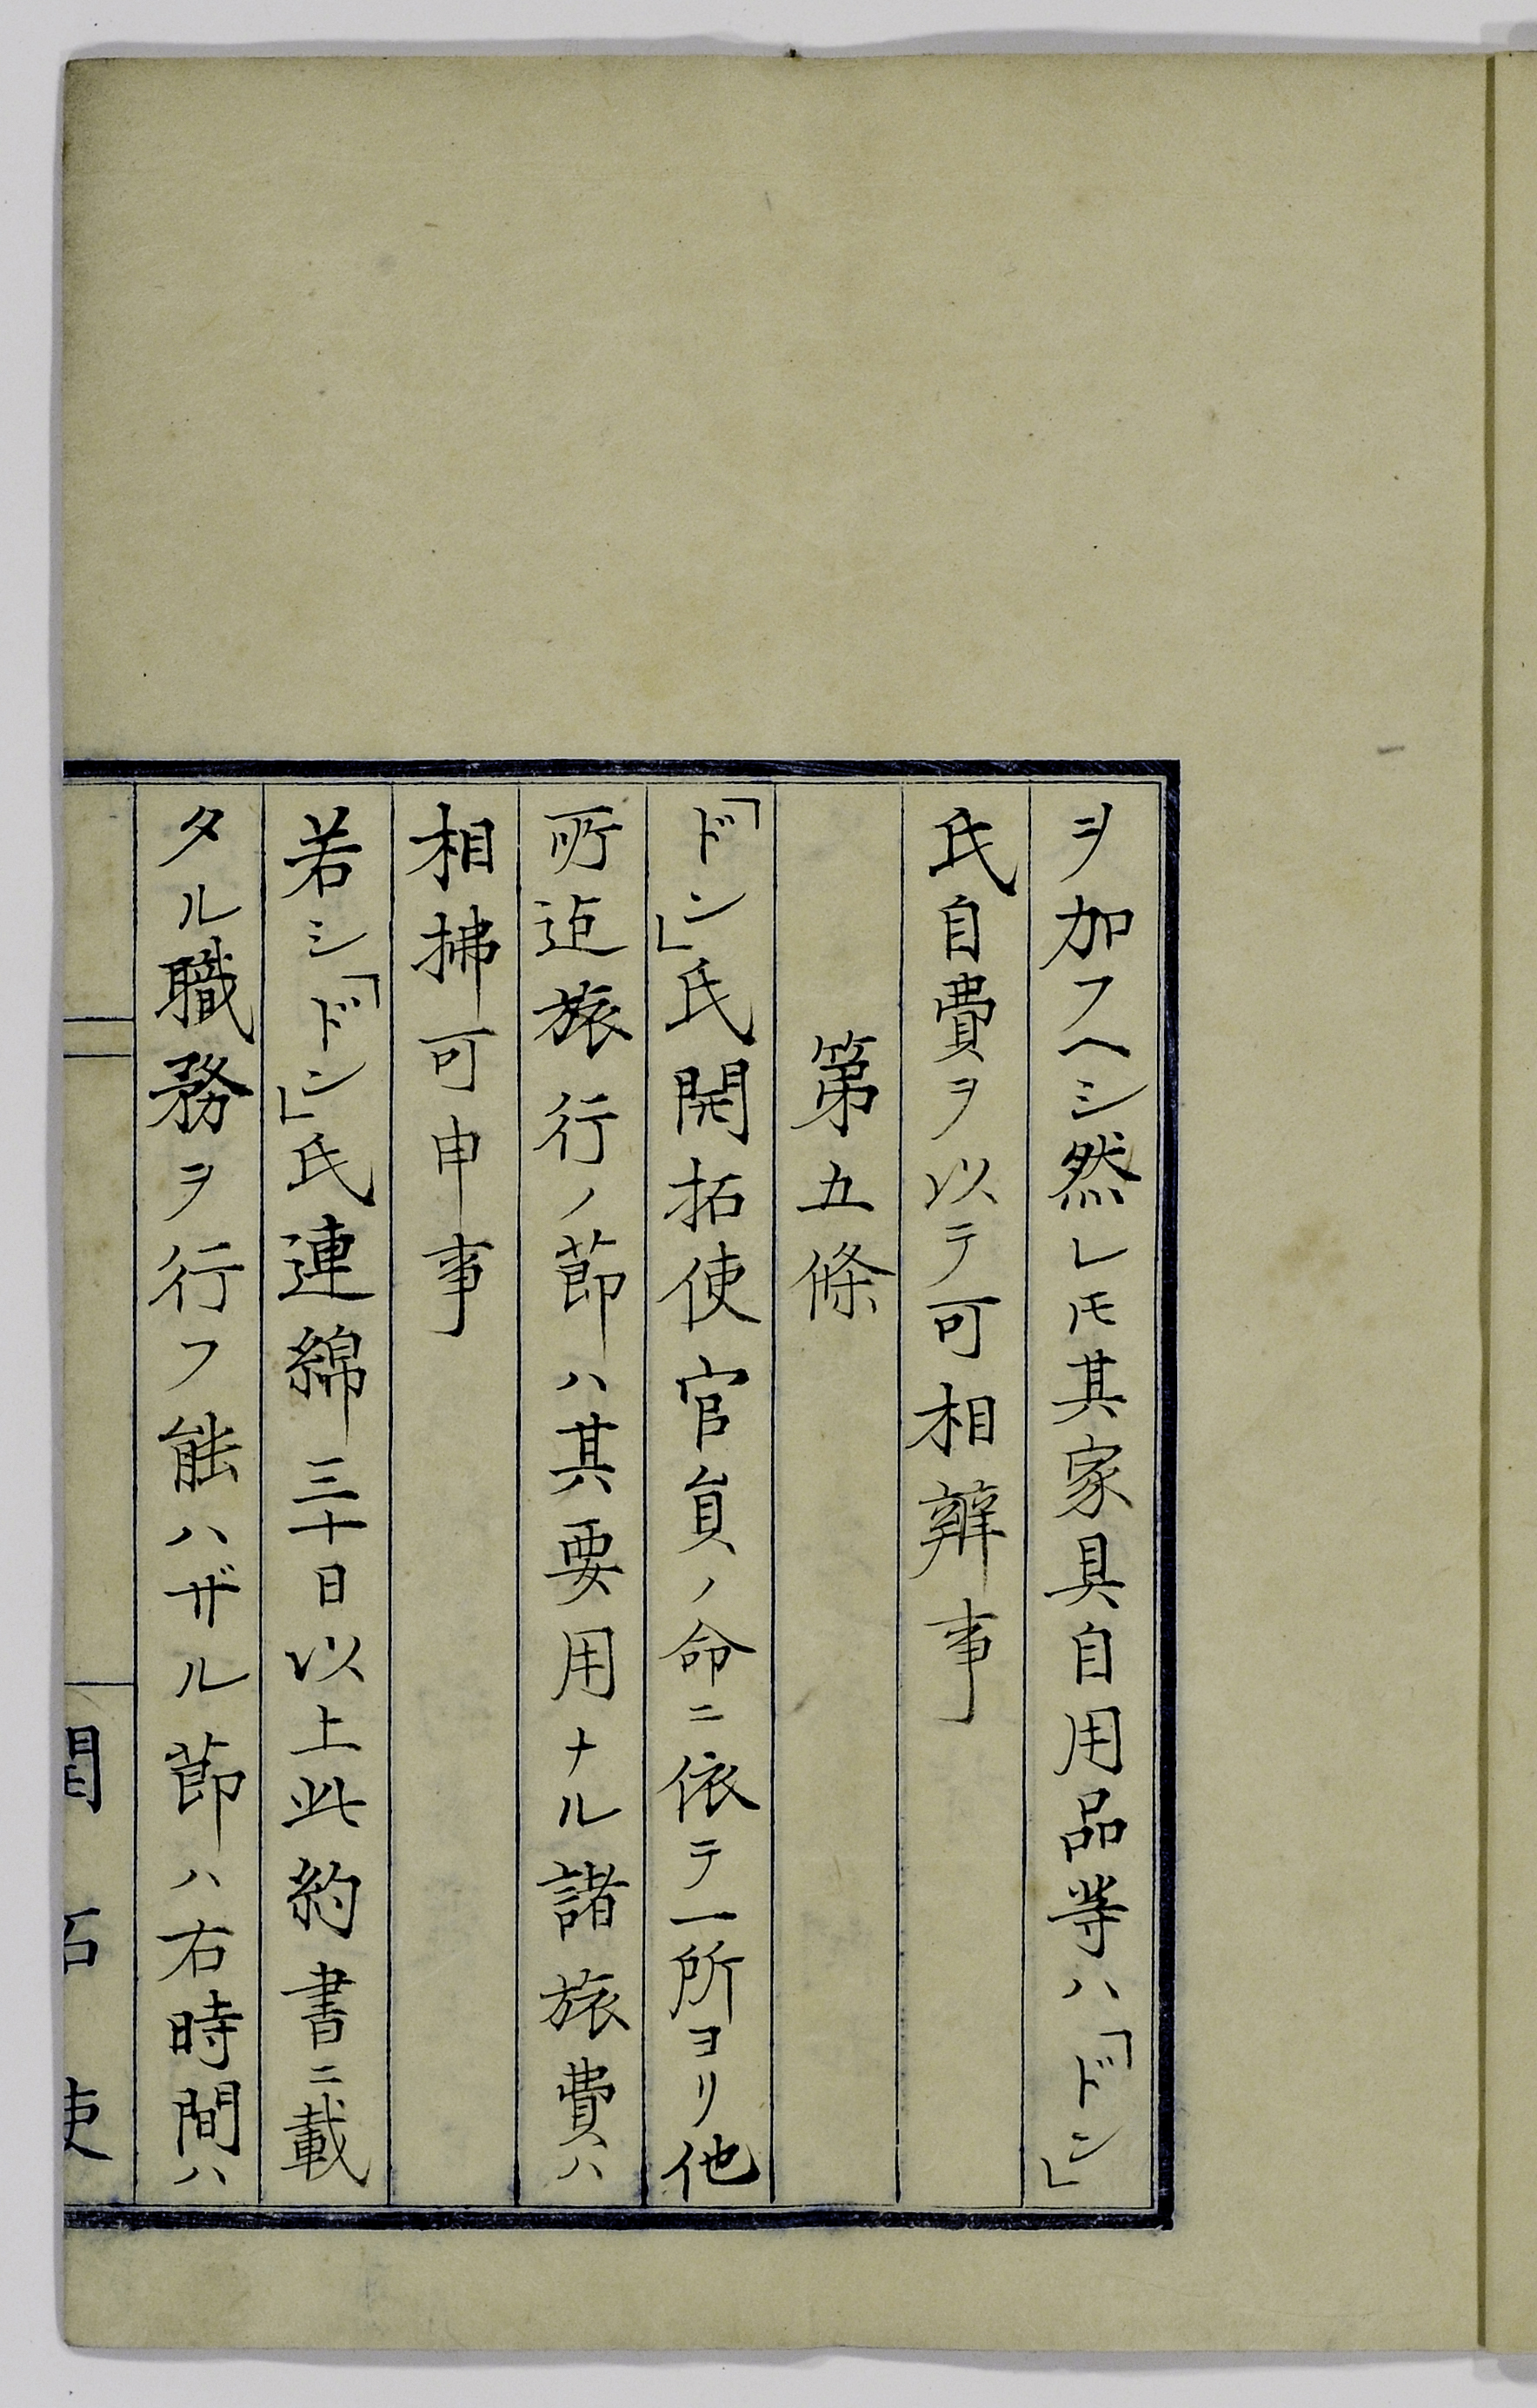 ヲ加フヘシ然レ𪜈其家具自用品等ハ「ドン」
氏自費ヲ以テ可相辨事
第五條
「ドン」氏開拓使官員ノ命ニ依テ一所ヨリ他
所迄旅行ノ節ハ其要用ナル諸旅費ハ
相拂可申事
若シ「ドン」氏連綿三十日以上此約書ニ載
タル職務ヲ行フ能ハザル節ハ右時間ハ
開拓使